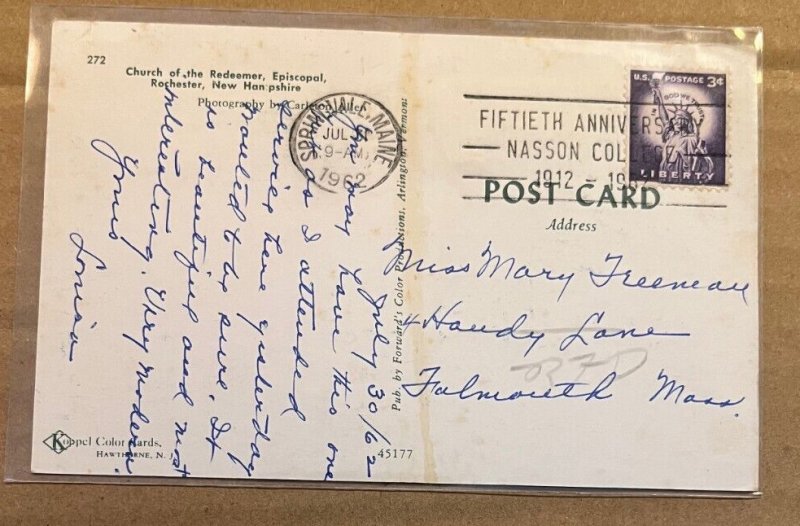 272
Church of the Redeemer, Episcopal,
Rochester, New Hampshire
Photography by Carleton Allen
SPRINGVALE, MAINE
JUL
9-AM
1962
FIFTIETH ANNIVERSARY
NASSON COLLEGE
1912 - 19
U.S. POSTAGE 3¢
IN GOD WE TRUST
LIBERTY
POST CARD
Address
Miss Mary Freeman
4 Handy Lane
Falmouth Mass.
July 30/62
You may have this one
as I attended
service here yesterday
wanted to be sure. It
is beautiful and most
interesting. Very modern.
Yours
Louisa
Pub. by Forward's Color Productions, Arlington, Vermont
Koppel Color Cards,
HAWTHORNE, N. J.
45177